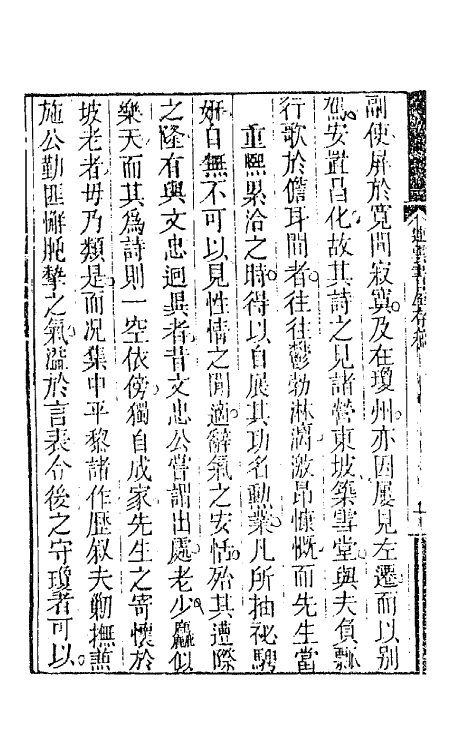 副使屏於寬閒寂寞及在瓊州亦因屢見左遷而以別
駕安置昌化故其詩之見諸營東坡築雪堂與夫負瓢
行歌於儋耳間者往往鬱勃淋漓激昂慷慨而先生當
重熙累洽之時得以自展其功名勳業凡所抽祕騁
妍自無不可以見性情之閒適辭氣之安恬殆其遭際
之隆有與文忠迥異者昔文忠公嘗謂出處老少麤似
樂天而其爲詩則一空依傍獨自成家先生之寄懷於
坡老者毋乃類是而况集中平黎諸作歷叙夫勦撫藎
施公勤匪懈肫摯之氣溢於言表令後之守瓊者可以